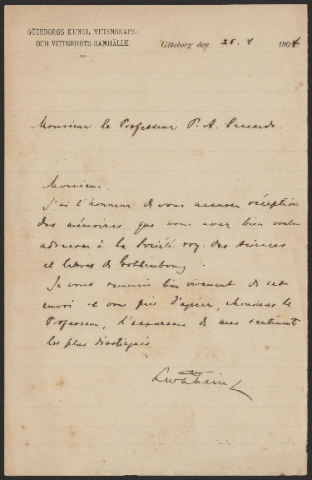 GÖTEBORGS KUNGL. VETENSKAPS-
OCH VITTERHETS SAMHÄLLE.
Göteborg den 26. 4 1904
Monsieur le Professeur P. A. Saccardo.
Monsieur.
J'ai l'honneur de vous accuser réception
des mémoires, que vous avez bien voulu
adresser à la Société roy. des sciences
et lettres de Gothembourg.
Je vous remercie bien vivement de cet
envoi et vous prie d'agréer, Monsieur le
Professeur, l'assurance de mes sentiments
les plus distingués